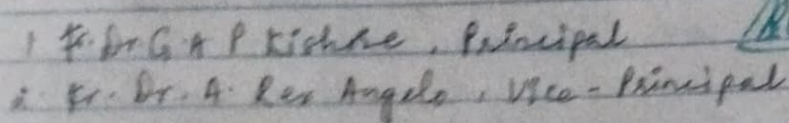 1 Fr. Dr G A P Kishore, Principal
2. Fr. Dr. A. Rex Angelo, Vice-Principal